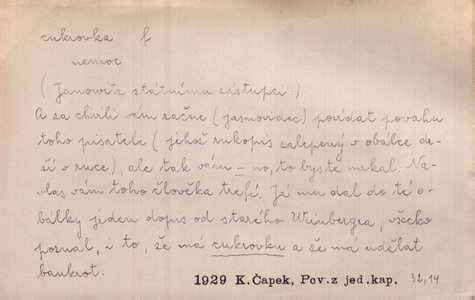 cukrovka f
nemoc
(Janowitz státnímu zástupci:)
A za chvíli vám začne (jasnovidec) povídat povahu
toho pisatele (jehož rukopis zalepený v obálce dr-
ží v ruce), ale tak vám – no, to byste nekal. Na-
vlas vám toho člověka trefí. Já mu dal do té o-
bálky jeden dopis od starého Weinbergra; všecko
poznal, i to, že má cukrovku a že má udělat
bankrot.
1929 K. Čapek, Pov. z jed. kap. 32,14